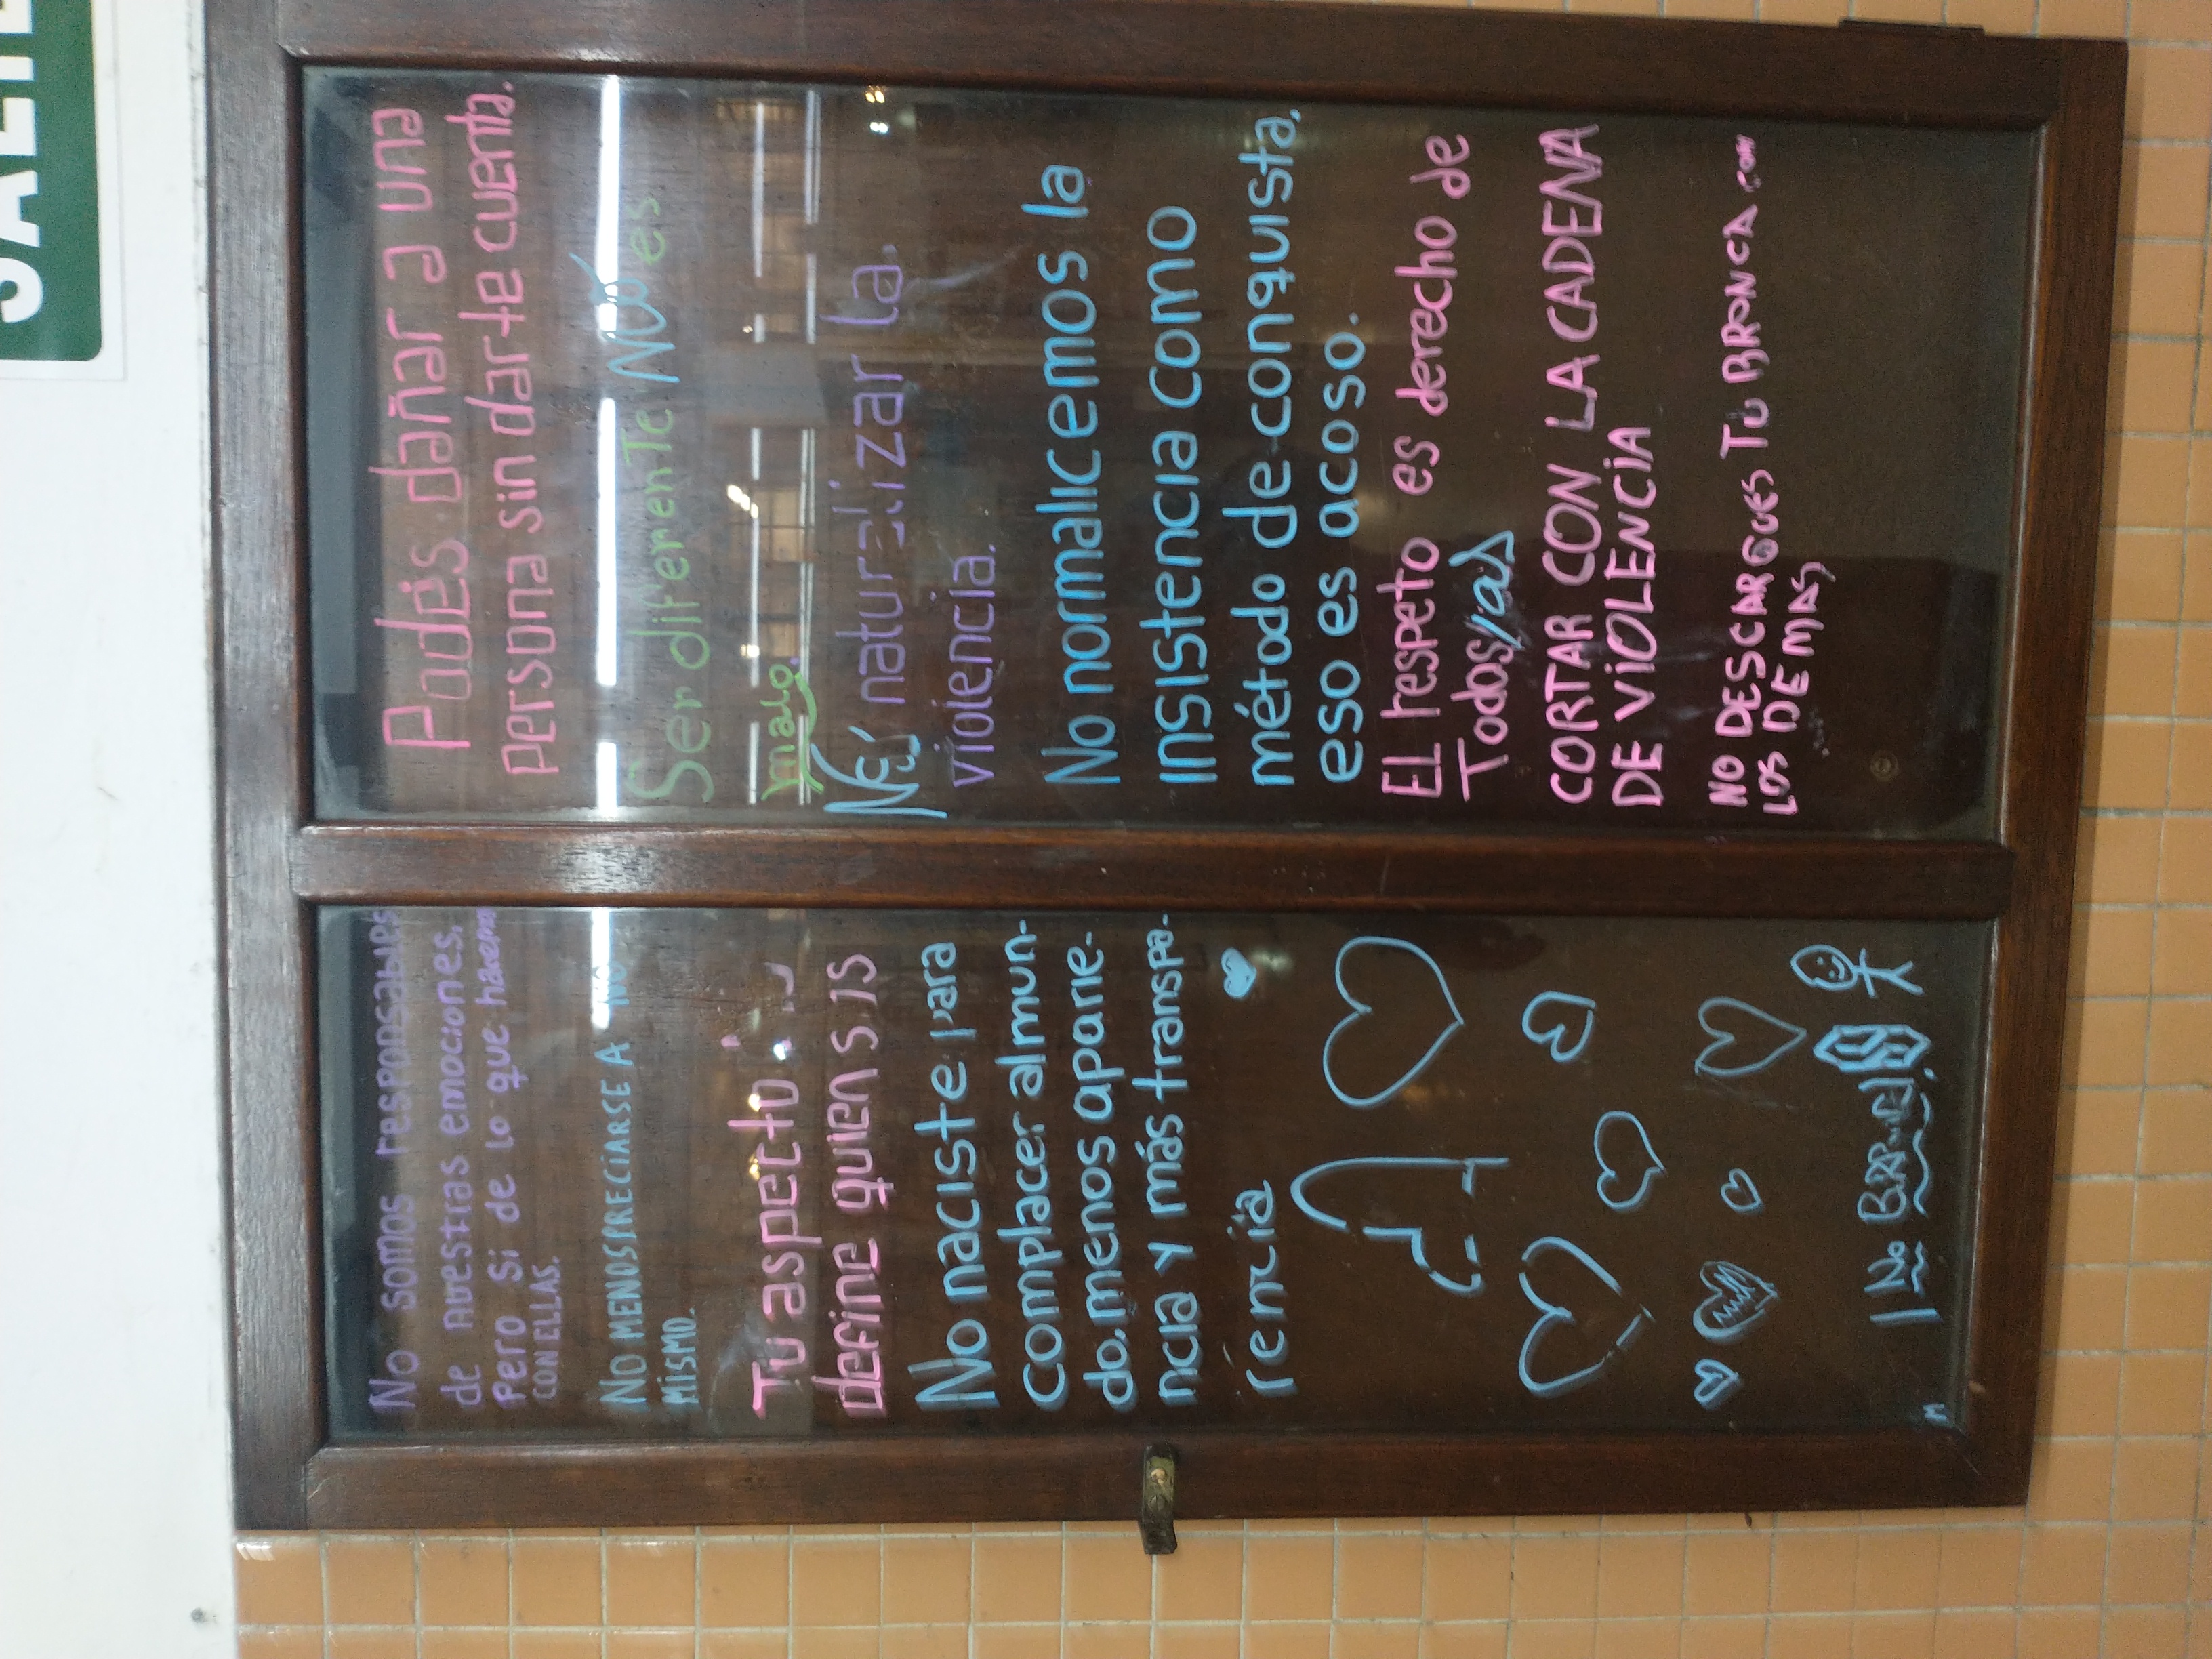 No somos responsables
de nuestras emociones.
Pero si de lo que hacemos
CON ELLAS.
NO MENOSPRECIARSE A
MISMO.
Tu aspecto
define quien
No naciste para
complacer al mun-
do. menos aparie-
ncia y más transpa-
rencia
No
Podés dañar a una
persona sin darte cuenta.
Ser diferente NO es
malo.
No naturalizar la.
violencia.
No normalicemos la
insistencia como
método de conquista,
eso es acoso.
El respeto es derecho de
Todos/as
CORTAR CON LA CADENA
DE VIOLENCIA
NO DESCARGUES TU BRONCA CON
LOS DEMAS